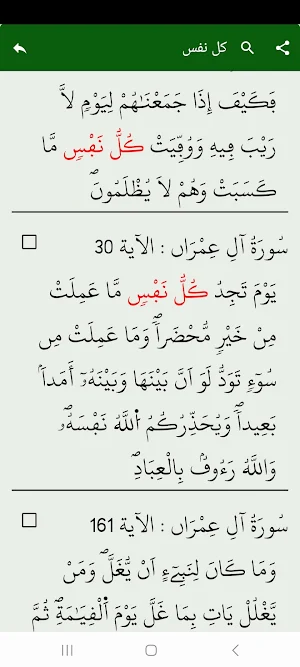 كل نفس
فَكَيْفَ إِذَا جَمَعْنَٰهُمْ لِيَوْمٍ لَّا
رَيْبَ فِيهِ وَوُفِّيَتْ كُلُّ نَفْسٍ مَّا
كَسَبَتْ وَهُمْ لَا يُظْلَمُونَۖ
سُورَةُ آلِ عِمْرَان : الآية 30
يَوْمَ تَجِدُ كُلُّ نَفْسٍ مَّا عَمِلَتْ
مِنْ خَيْرٍ مُّحْضَراًۖ وَمَا عَمِلَتْ مِن
سُوٓءٍ تَوَدُّ لَوَ اَنَّ بَيْنَهَا وَبَيْنَهُۥٓ أَمَداَۢ
بَعِيداًۖ وَيُحَذِّرُكُمُ اُ۬للَّهُ نَفْسَهُۥۖ
وَاللَّهُ رَءُوفُۢ بِالْعِبَادِۖ
سُورَةُ آلِ عِمْرَان : الآية 161
وَمَا كَانَ لِنَبِيٓءٍ اَنْ يُّغَلَّۖ وَمَنْ
يَّغْلُلْ يَاتِ بِمَا غَلَّ يَوْمَ اَ۬لْقِيَٰمَةِۖ ثُمَّ